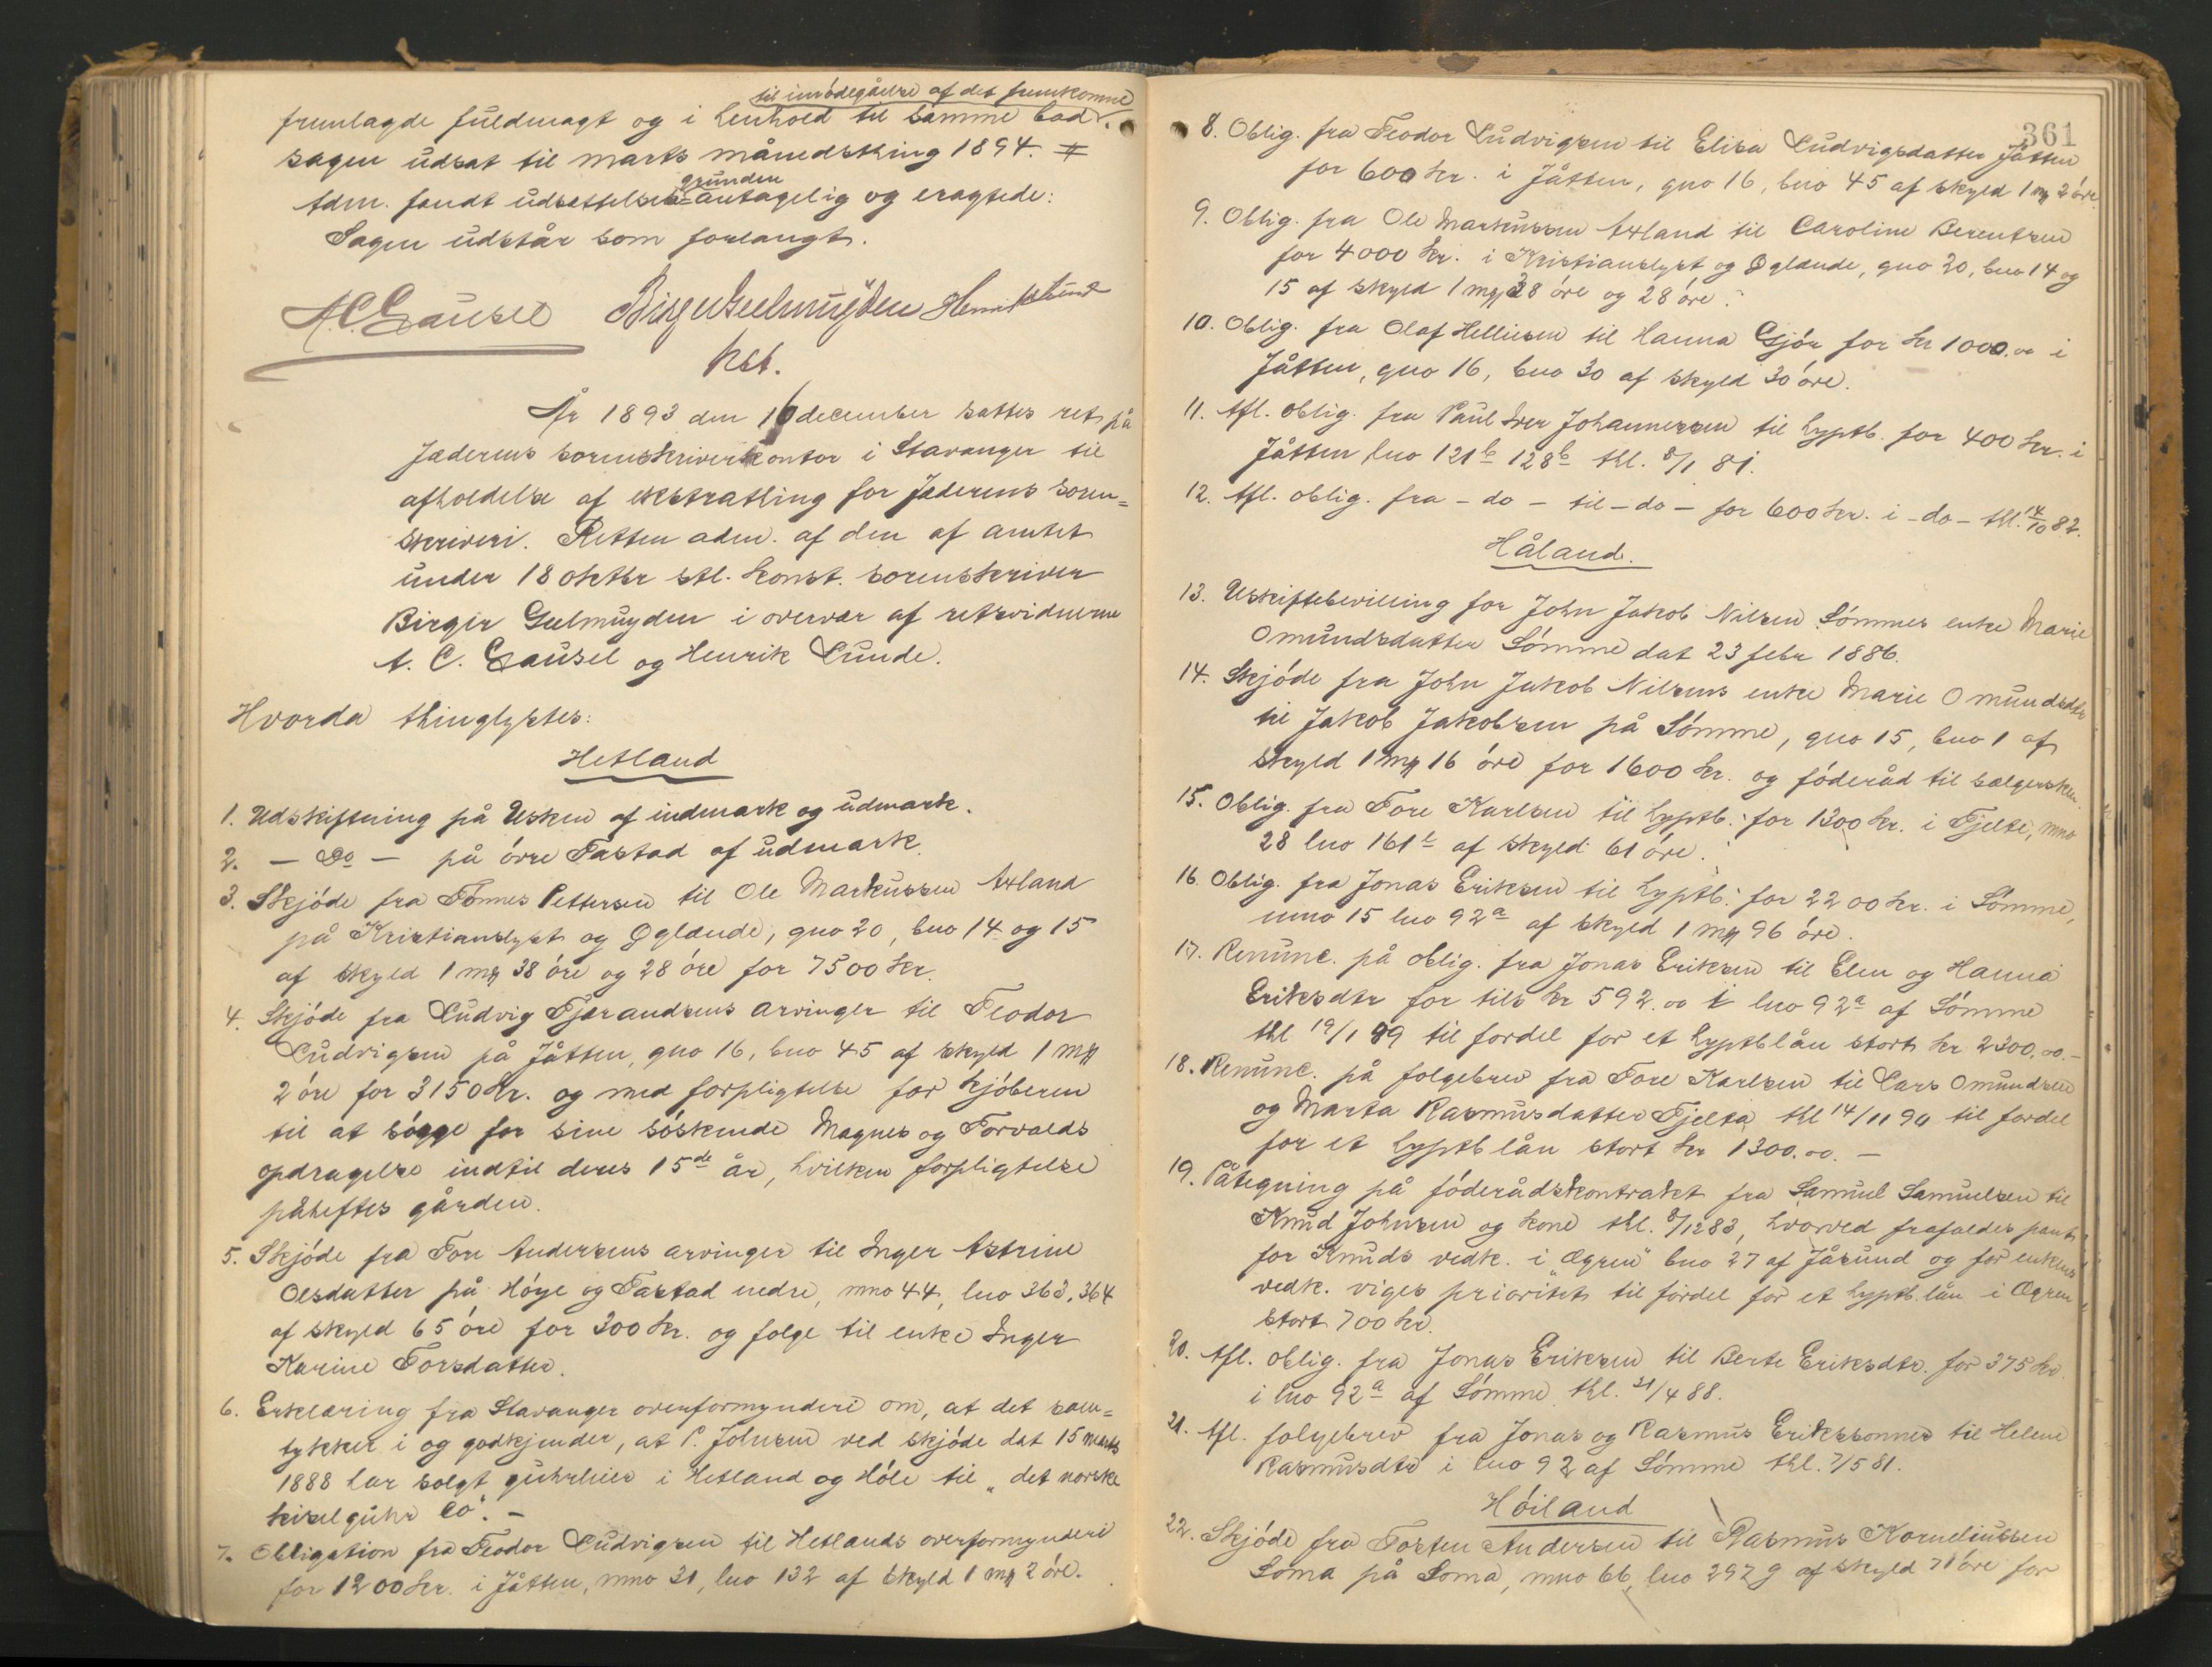 til imødegåelse af det fremkomne
fremlagde fuldmagt og i henhold til samme bad
sagen udsat til marts månedsthing 1894. #
grunden
Adm. fandt udsættelses- antagelig og eragtede:
Sagen udstår som forlangt.
A.C. Gausel Birger Geelmuyden Henrik Lunde
kst.
År 1893 den 16 december sattes ret på
Jæderens sorenskriverkontor i Stavanger til
afholdelse af ekstrathing for Jæderens soren=
skriveri. Retten adm. af den af amtet
under 18 oktbr stl. konst. sorenskriver
Birger Gelmuyden i overvær af retsvidnerne
A. C. Gausel og Henrik Lunde.
Hvorda thinglystes:
Hetland
1. Udskiftning på Usken af indmark og udmark.
2. — Do — på övre Tastad af udmark.
3. Skjöde fra Tönnes Pettersen til Ole Markussen Axland
på Kristianslyst og Öglænde, gno 20, bno 14 og 15
af skyld 1 mk 38 öre og 28 öre for 7500 kr.
4. Skjöde fra Ludvig Tjærandsens arvinger til Teodor
Ludvigsen på Jåtten, gno 16, bno 45 af skyld 1 mk
2 öre for 3150 Kr. og med forpligtelse for kjöberen
til at sögge for sine söskende Magnes og Torvalds
opdragelse indtil deres 15de år, hvilken forpligtelse
påheftes gården.
5. Skjöde fra Tore Andersens arvinger til Inger Astrine
Olsdatter på Höye og Tastad nedre, mno 44, lno 363, 364
af skyld 65 öre for 300 Kr. og folge til enke Inger
Karine Torsdatter.
6. Erklæring fra Stavanger overformynderi om, at det sam=
tykker i og godkjender, at P. Johnsen ved skjöde dat 15 marts
1888 har solgt guhrleier i Hetland og Höle til „det norske
kiselguhr Co". —
7. Obligation fra Teodor Ludvigsen til Hetlands overformynderi
for 1200 kr. i Jåtten, mno 31, lno 132 af skyld 1 mk 2 öre.
361
8. Oblig. fra Teodor Ludvigsen til Elisa Ludvigsdatter Jåtten
for 600 kr. i Jåtten, gno 16, bno 45 af skyld 1 mk 2 öre.
9. Oblig. fra Ole Markussen Axland til Caroline Berentsen
for 4000 kr. i Kristianslyst og Öglænde, gno 20, bno 14 og
15 af skyld 1 mk 38 öre og 28 öre.
10. Oblig. fra Olaf Helliesen til Hanna Gjör for kr 1000.00 i
Jåtten, gno 16, bno 30 af skyld 30 öre.
11. Afl. oblig. fra Paul Iver Johannessen til hyptb. for 400 kr. i
Jåtten lno 121b 128b thl. 8/1 81.
12. Afl. oblig. fra - do - til - do - for 600 kr. i - do - thl. 14/10 82.
Håland.
13. Uskiftebevilling for John Jakob Nilsen Sömmes enke Marie
Omundsdatter Sömme dat 23 febr 1886.
14. Skjöde fra John Jakob Nilsens enke Marie Omundsdtr
til Jakob Jakobsen på Sömme, gno 15, bno 1 af
skyld 1 mk 16 öre for 1600 kr. og föderåd til sælgersken.
15. Oblig. fra Tore Karlsen til hyptb. for 1300 kr. i Tjelte, mno
28 lno 161b af skyld 61 öre.
16. Oblig. fra Jonas Eriksen til hyptb. for 2200 kr. i Sömme,
mno 15 lno 92a af skyld 1 mk 96 öre.
17. Renunc. på oblig. fra Jonas Eriksen til Elen og Hanna
Eriksdtr for tils kr 592.00 i lno 92a af Sömme
thl 19/1 89 til fordel for et hyptblån stort kr 2300.00.—
18. Renunc. på folgebrev fra Tore Karlsen til Lars Omundsen
og Marta Rasmusdatter Tjelta thl 14/11 90 til fordel
for et hyptb lån stort kr 1300.00. —
19. Påtegning på föderådskontrakt fra Samuel Samuelsen til
Knud Johnsen og kone thl. 8/12 83, hvorved frafaldes pant
for Knuds vedk. i „Øgren" bno 27 af Jåsund og for enkens
vedk. viges prioritet til fordel for et hyptb. lån i Øgren
stort 700 kr.
20. Afl. oblig. fra Jonas Eriksen til Berte Eriksdtr. for 375 kr.
i lno 92a af Sömme thl. 21/4 88.
21. Afl. folgebrev fra Jonas og Rasmus Erikssönner til Helene
Rasmusdtr i lno 92 af Sömme thl. 7/5 81.
Höiland
22. Skjöde fra Torten Andersen til Rasmus Korneliussen
Soma på Soma, mno 66, lno 297g af skyld 71 öre for